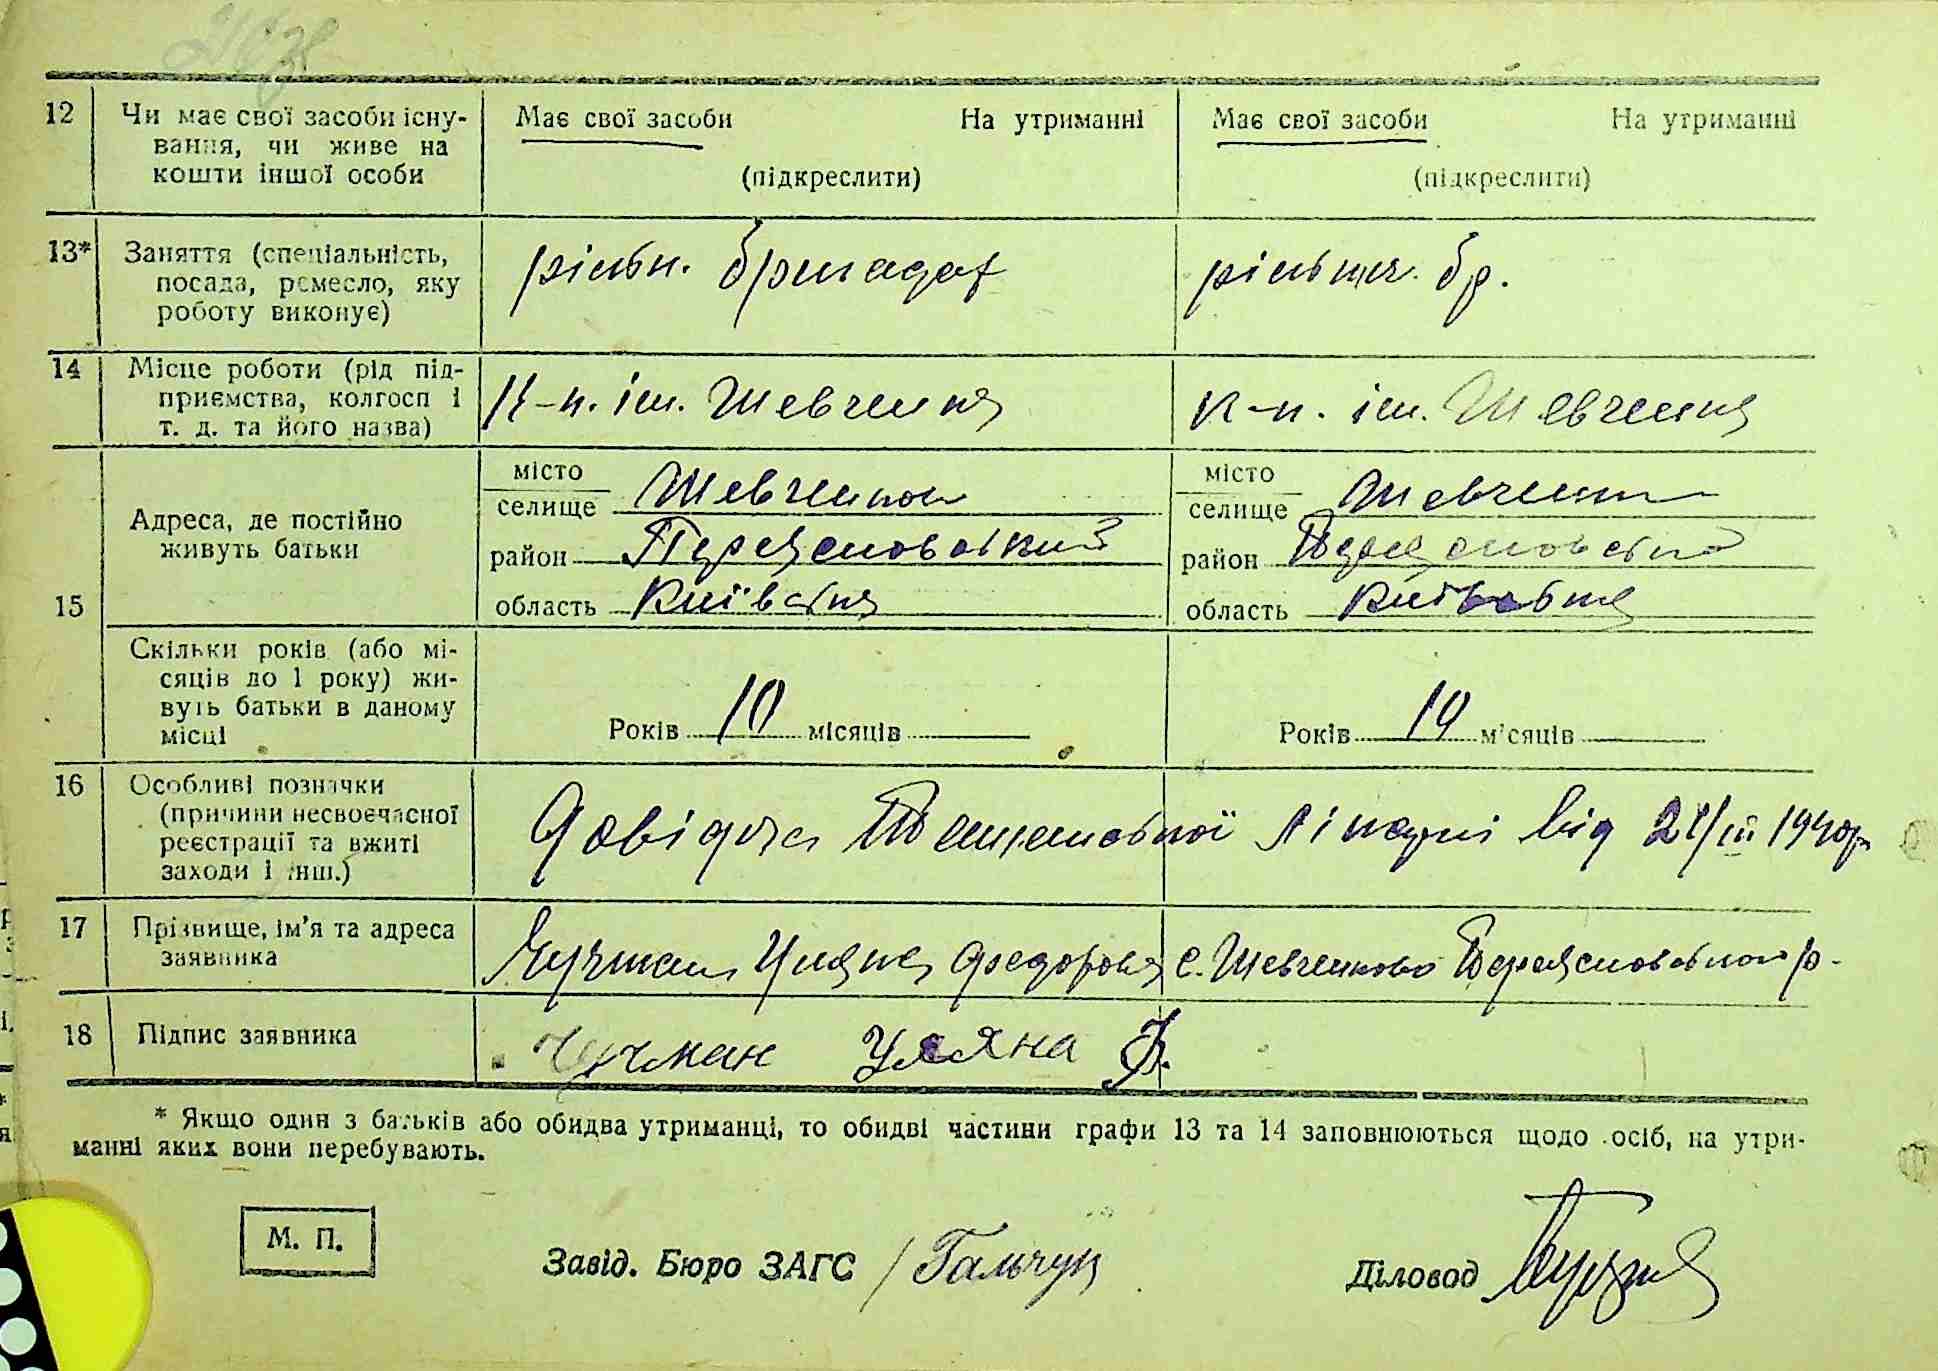 12 Чи має свої засоби існу- Має свої засоби На утриманні Має свої засоби На утриманні
вання, чи живе на
кошти іншої особи (підкреслити) (підкреслити)
13* Заняття (спеціальність, рільн. бригада рільнич. бр.
посада, ремесло, яку
роботу виконує)
14 Місце роботи (рід під- К-п. ім. Шевченка к-п. ім. Шевченка
приємства, колгосп і
т. д. та його назва)
15 Адреса, де постійно
живуть батьки
місто
селище Шевченково
район Переяславський
область Київська
місто
селище Шевченк
район Переяславський
область Київська
Скільки років (або мі-
сяців до 1 року) жи-
вуть батьки в даному
місці
Років 10 місяців — Років 10 місяців —
16 Особливі позначки Довідка лікарні від 21/III 1940р.
(причини несвоєчасної
реєстрації та вжиті
заходи і інш.)
17 Прізвище, ім'я та адреса Чучман Уляна Федоровна с. Шевченково Переяславського р-
заявника
18 Підпис заявника Чучман Уляна Ф.
* Якщо один з батьків або обидва утриманці, то обидві частини графи 13 та 14 заповнюються щодо осіб, на утри-
манні яких вони перебувають.
М. П.
Завід. Бюро ЗАГС Гальчук
Діловод